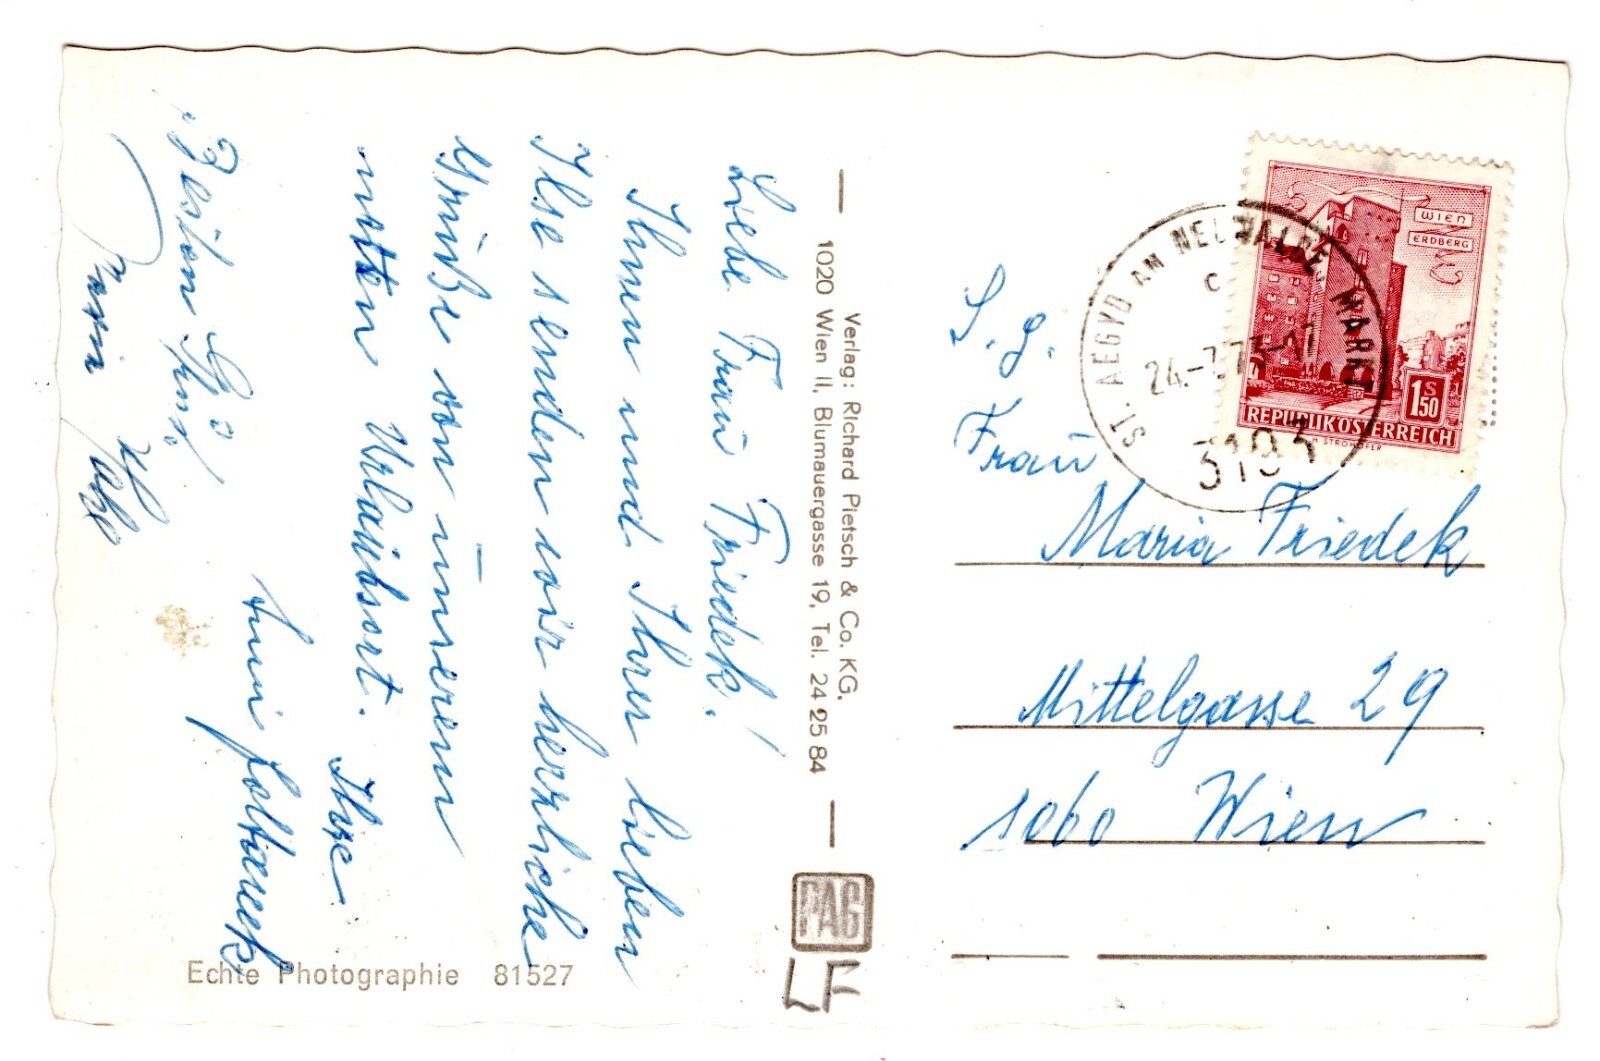 Liebe Frau Friedek!
Ihnen und Ihren lieben
Ilse senden wir herzliche
Grüße von unserem
netten Urlaubsort.
Ihre
Besten Gruß
Verlag: Richard Pietsch & Co. KG.
1020 Wien II, Blumauergasse 19, Tel. 24 25 84
PAG
LF
Echte Photographie 81527
WIEN
ERDBERG
1 S 50
REPUBLIK ÖSTERREICH
ST. AEGYD AM NEUWALDE, MARKT
c
3193
S. g.
Frau
Maria Friedek
Mittelgasse 29
1060 Wien